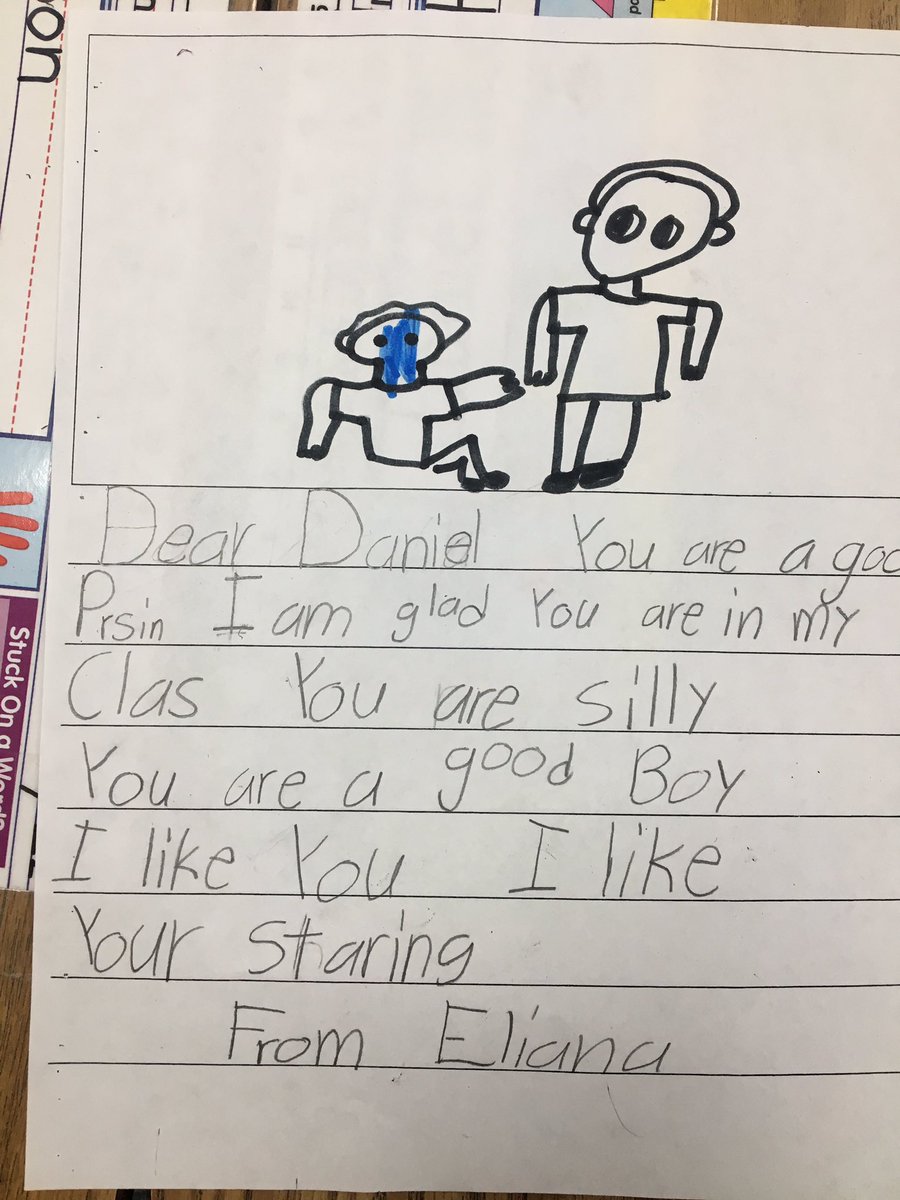 on
Stuck On a Word
Dear Daniel You are a goo
Prsin I am glad You are in my
Clas You are silly
You are a good Boy
I like You I like
Your Sharing
From Eliana